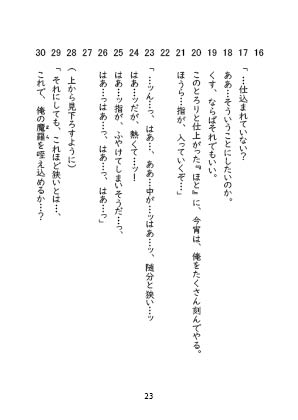 16
17「…仕込まれていない？
18 ああ…そういうことにしたいのか。
19 くす、ならばそれでもいい。
20 このとろりと仕上がった『ほと』に、今宵は、俺をたくさん刻んでやる。
21 ほうら…指が、入っていくぞ…」
22
23「…ッん…っ、はあ…、ああ…中が…ッはあ…ッ、随分と狭い…ッ
24 はあ…ッだが、熱くて…ッ！
25 はあ…ッ指が、ふやけてしまいそうだ…っ、
26 はあ…っはあ…っ、はあ…っ、はあ…っ」
27
28（上から見下ろすように）
29「それにしても、これほど狭いとは…、
30 これで、俺の魔羅を咥え込めるか…？
まら
23